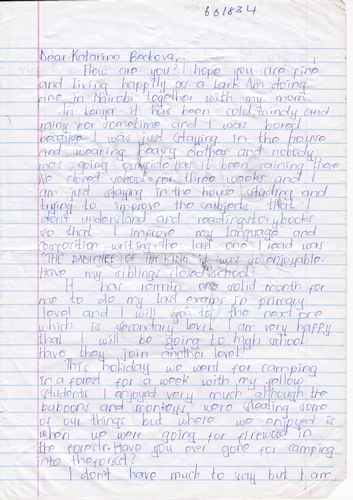 661834
Dear Katarina Beckova,
How are you? I hope you are fine
and living happily as a lark. Am doing
fine in Nairobi together with my mom.
In kenya it has been cold, windy and
rainy for sometime and I was bored
because I was just staying in the house
and wearing heavy clothes and nobody
was going outside has it been raining there
We closed school for three weeks and I
am just staying in the house studing and
trying to improve the subjects that I
don't understand and reading storybooks
so that I improve my language and
composition writing. the last one I read was
"THE DAUGHTER OF THE KING" it was so enjoyable.
Have my siblings closed school?
It has remain one solid month for
me to do my last exams in primary
level and I will go to the next one
which is secondary level. I am very happy
that I will be going to high school
Have they join another level?
This holiday we went for camping
in a forest for a week with my fellow
students I enjoyed very much although the
baboons and monkeys were stealing some
of our things but where we enjoyed is
when we were going for firewood in
the forests. Have you ever gone for camping
into the forest?
I don't have much to say but I am